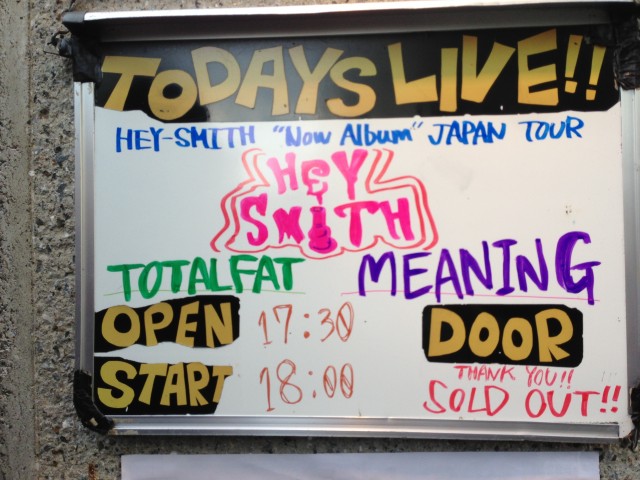 TODAYS LIVE!!
HEY-SMITH "Now Album" JAPAN TOUR
HEY
SMITH
TOTALFAT MEANING
OPEN 17:30 DOOR
START 18:00 THANK YOU!!
SOLD OUT!!